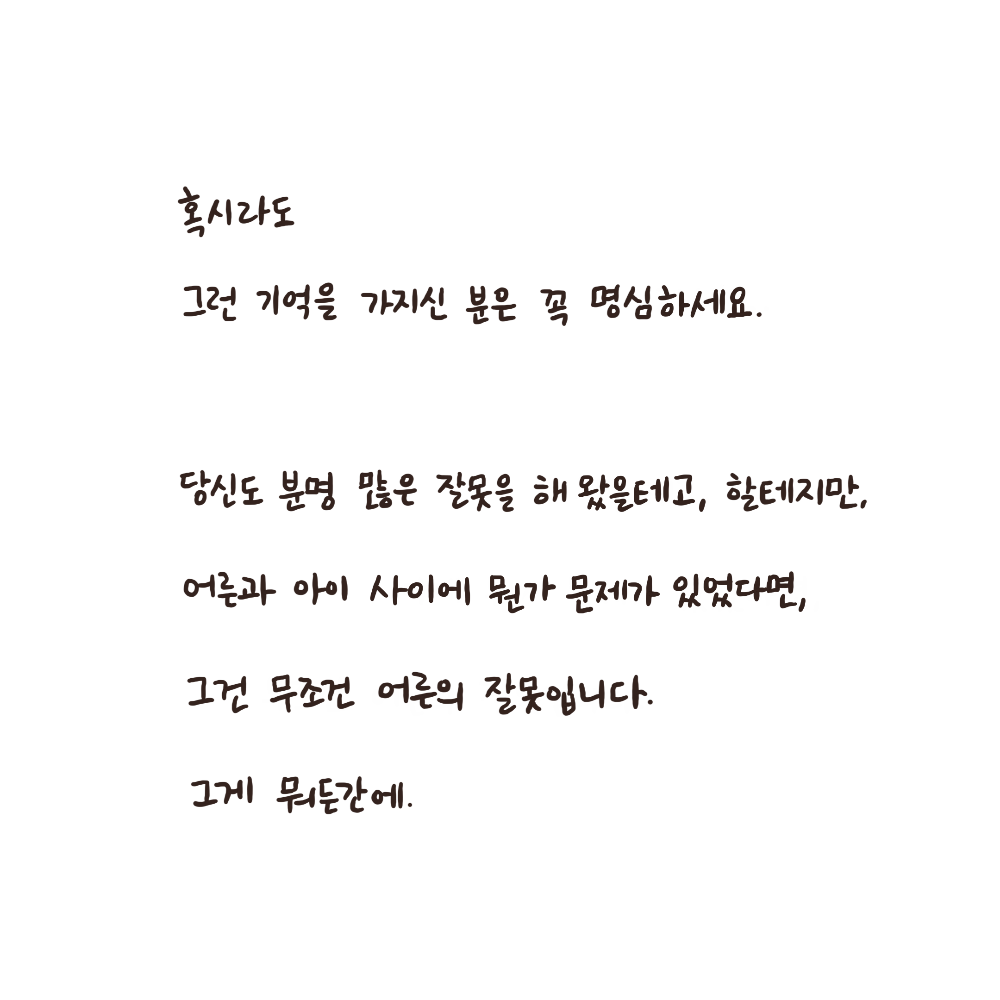 혹시라도
그런 기억을 가지신 분은 꼭 명심하세요.
당신도 분명 많은 잘못을 해 왔을테고, 할테지만,
어른과 아이 사이에 뭔가 문제가 있었다면,
그건 무조건 어른의 잘못입니다.
그게 뭐든간에.